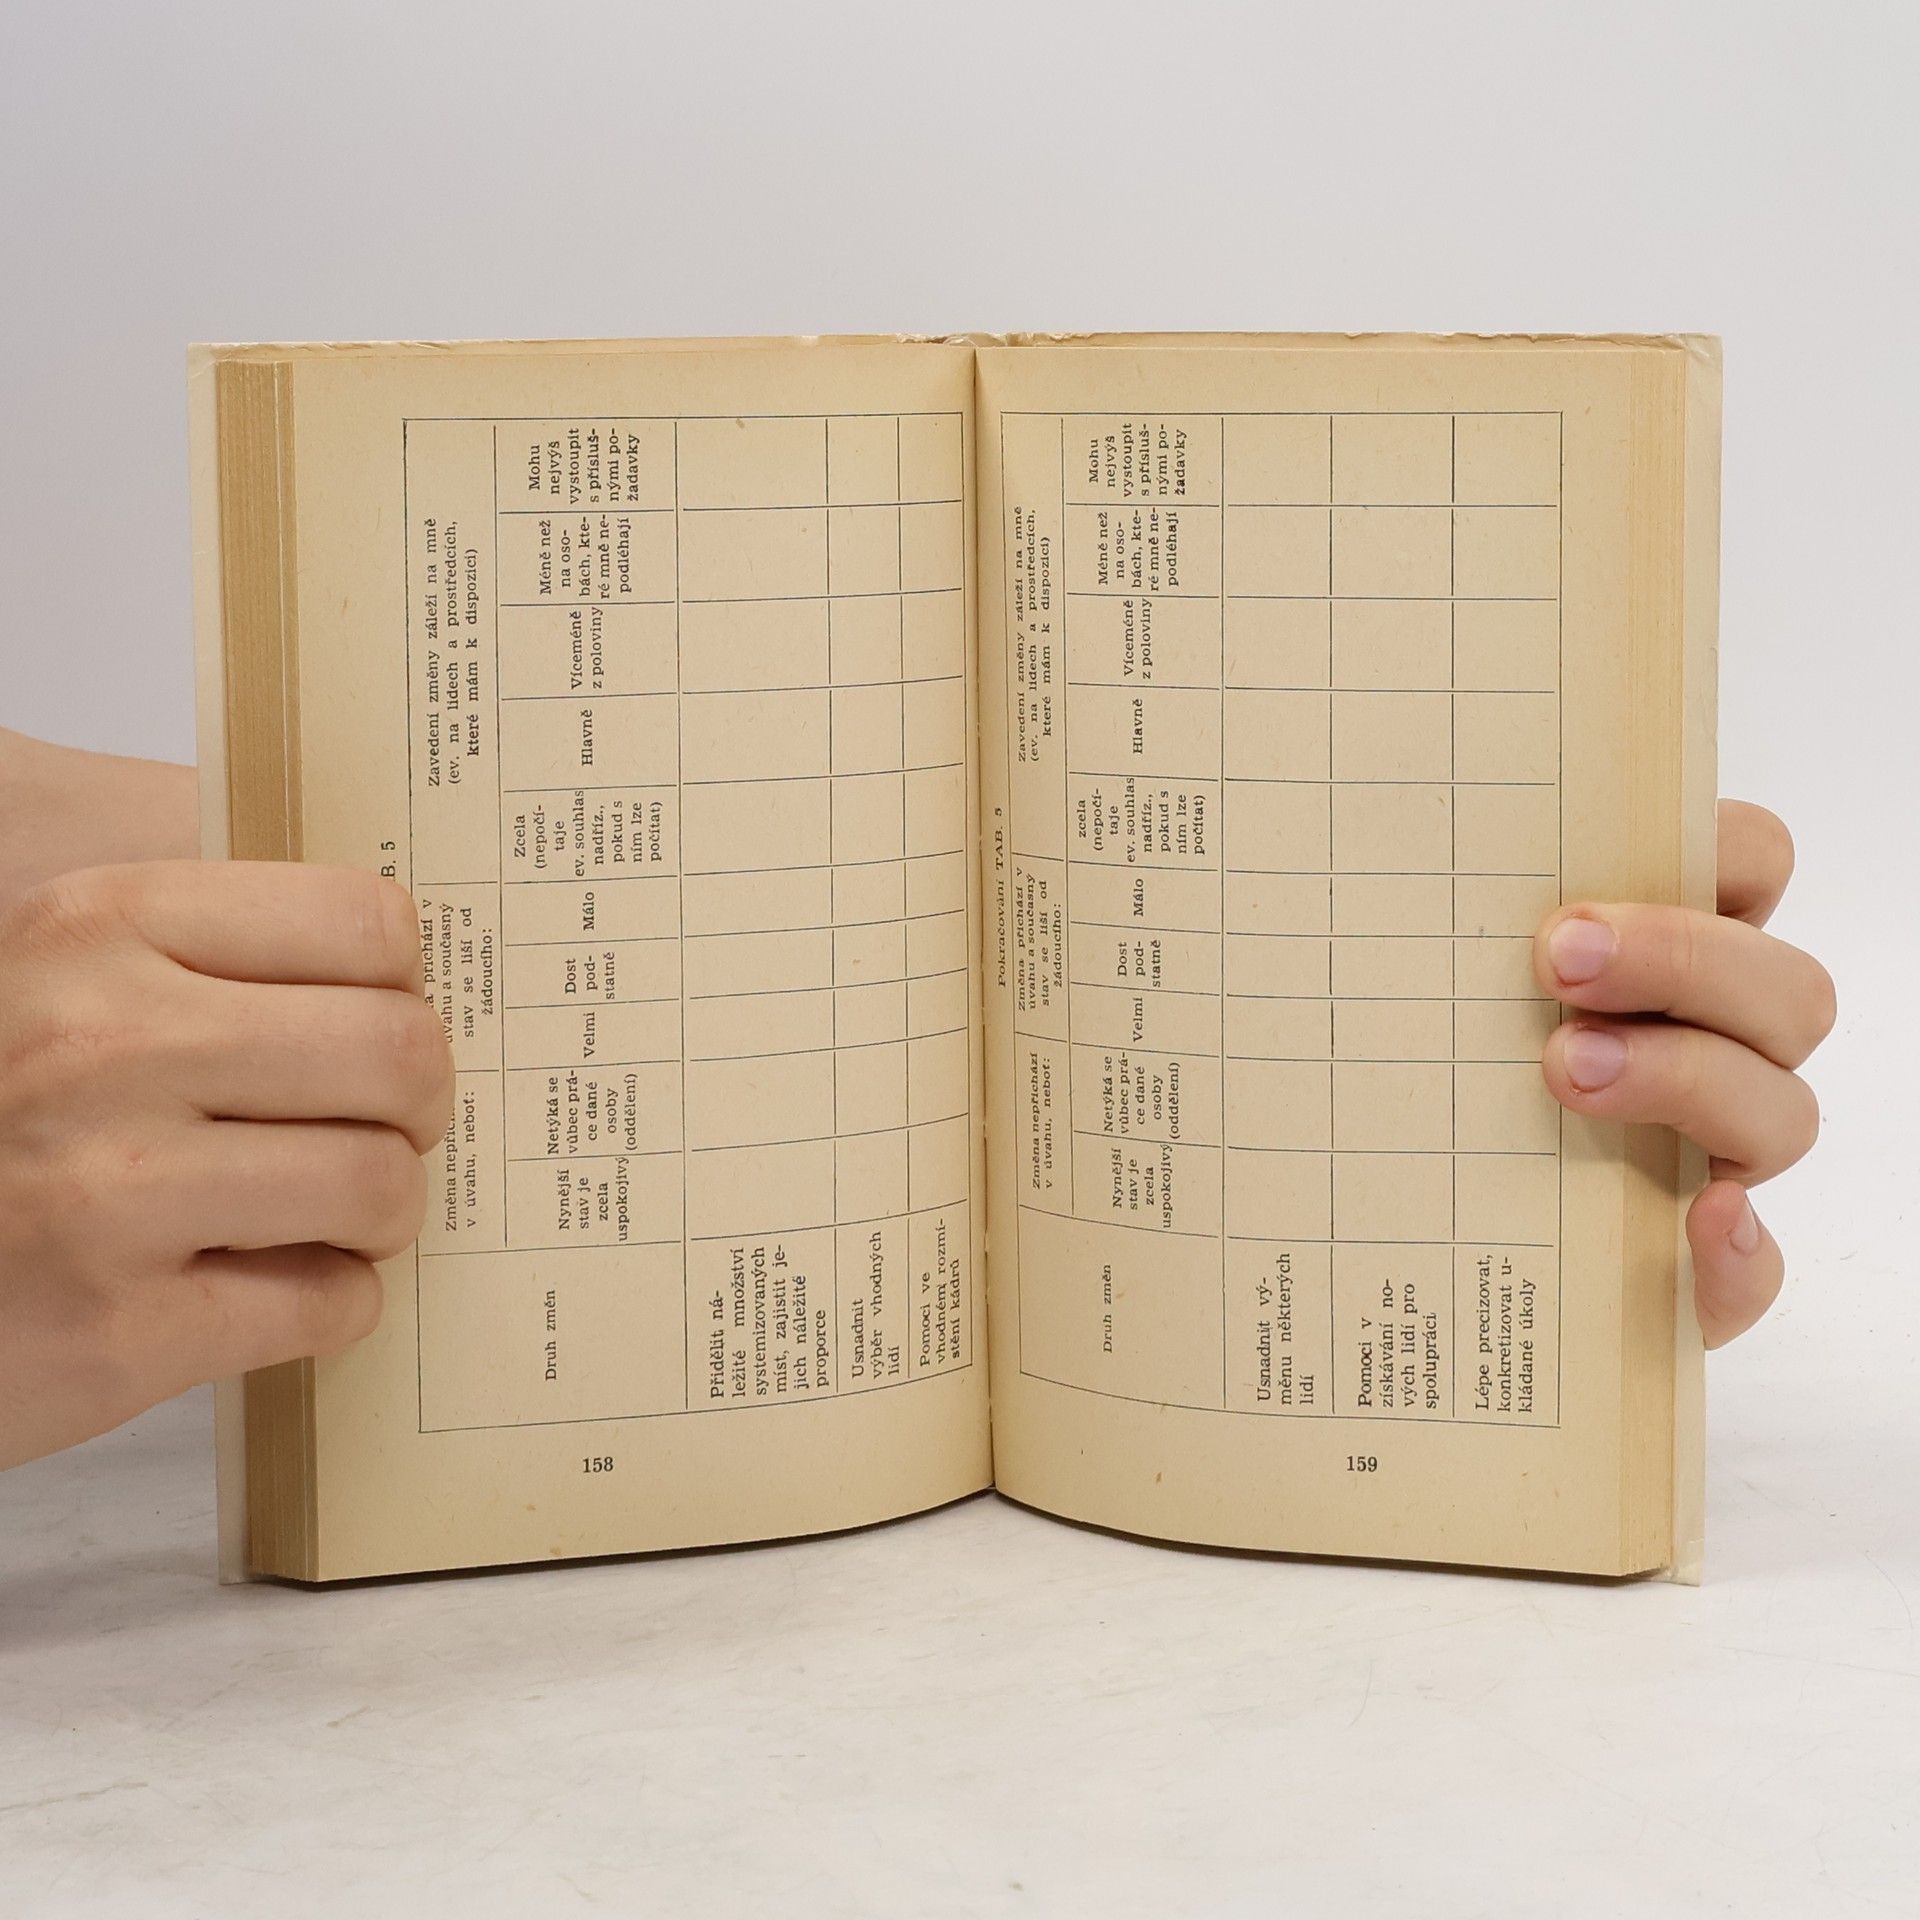 B. 5
Druh změn
Změna
v úvahu, neboť:
přichází v
úvahu a současný
stav se liší od
žádoucího:
Zavedení změny záleží na mně
(ev. na lidech a prostředcích,
které mám k dispozici)
Nynější
stav je
zcela
uspokojivý
Netýká se
vůbec prá-
ce dané
osoby
(oddělení)
Velmi
Dost
pod-
statně
Málo
Zcela
(nepočí-
taje
ev. souhlas
nadříz.,
pokud s
ním lze
počítat)
Hlavně
Víceméně
z poloviny
Méně než
na oso-
bách, kte-
ré mně ne-
podléhají
Mohu
nejvýš
vystoupit
s přísluš-
nými po-
žadavky
Přidělit ná-
ležité množství
systemizovaných
míst, zajistit je-
jich náležité
proporce
Usnadnit
výběr vhodných
lidí
Pomoci ve
vhodném rozmí-
stění kádrů
158
Pokračování TAB. 5
Druh změn
Změna nepřichází
v úvahu, neboť:
Změna přichází v
úvahu a současný
stav se liší od
žádoucího:
Zavedení změny záleží na mně
(ev. na lidech a prostředcích,
které mám k dispozici)
Nynější
stav je
zcela
uspokojivý
Netýká se
vůbec prá-
ce dané
osoby
(oddělení)
Velmi
Dost
pod-
statně
Málo
zcela
(nepočí-
taje
ev. souhlas
nadříz.,
pokud s
ním lze
počítat)
Hlavně
Víceméně
z poloviny
Méně než
na oso-
bách, kte-
ré mně ne-
podléhají
Mohu
nejvýš
vystoupit
s přísluš-
nými po-
žadavky
Usnadnit vý-
měnu některých
lidí
Pomoci v
získávání no-
vých lidí pro
spolupráci
Lépe precizovat,
konkretizovat u-
kládané úkoly
159